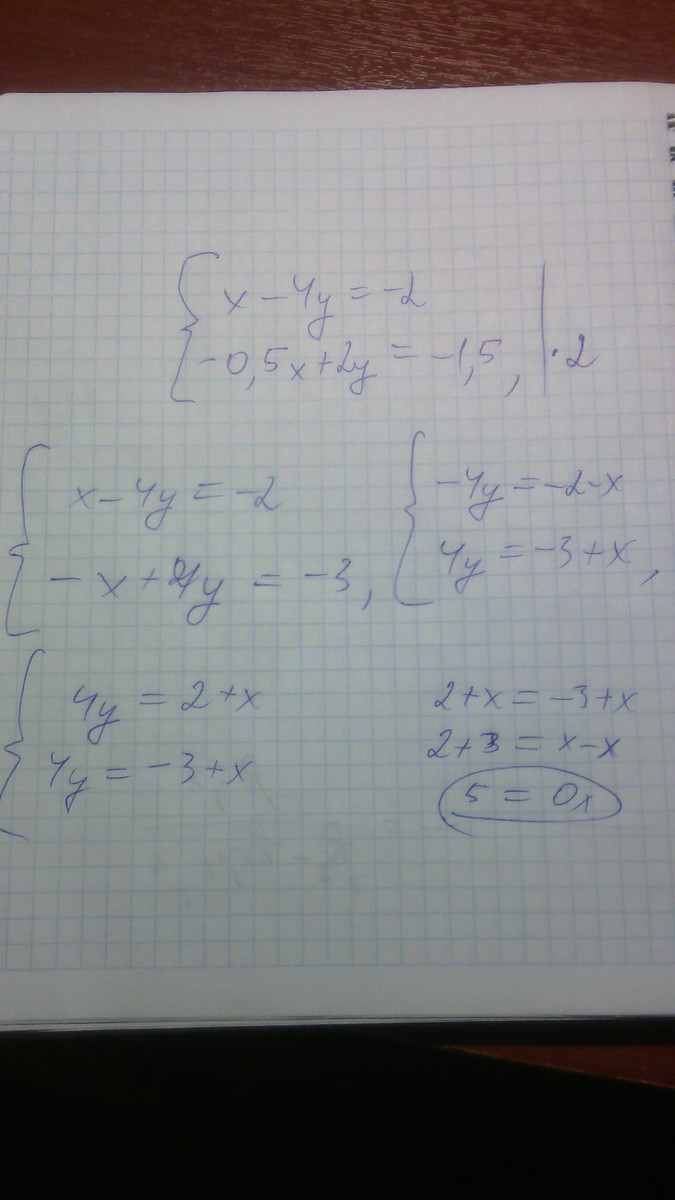 x - 4y = -2
-0,5x + 2y = -1,5, | · 2
x - 4y = -2
- x + 4y = -3,
-4y = -2 - x
4y = -3 + x,
4y = 2 + x
4y = -3 + x
2 + x = -3 + x
2 + 3 = x - x
5 = 0x